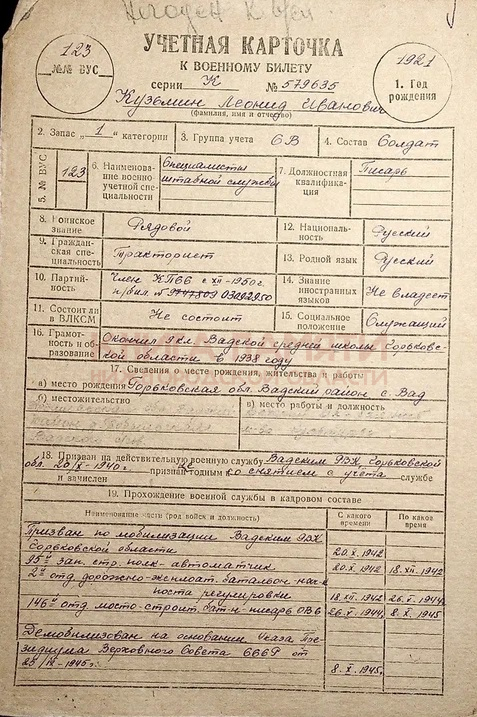 Негоден к в/сл
УЧЕТНАЯ КАРТОЧКА
К ВОЕННОМУ БИЛЕТУ
серии К № 579635
123
№№ ВУС
1921
1. Год рождения
Кузьмин Леонид Иванович
(фамилия, имя и отчество)
2. Запас „1“ категории
3. Группа учета 6В
4. Состав Солдат
5. № ВУС 123
6. Наименование военно учетной специальности Специалисты штабной службы
7. Должностная квалификация Писарь
8. Воинское звание Рядовой
12. Национальность Русский
9. Гражданская специальность Тракторист
13. Родной язык Русский
10. Партийность Член КПСС с XII-1950 г.
п/бил. № 03092950
14. Знание иностранных языков Не владеет
11. Состоит ли в ВЛКСМ Не состоит
15. Социальное положение Служащий
16. Грамотность и образование Окончил 9 кл. Вадской средней школы Горьковской области в 1938 году
17. Сведения о месте рождения, жительства и работы
а) место рождения Горьковская обл. Вадский район с. Вад
б) местожительство
в) место работы и должность
18. Призван на действительную военную службу Вадским РВК, Горьковской
обл. 20/X-1940 г. признан годным со снятием с учета службе
и зачислен
19. Прохождение военной службы в кадровом составе
Наименование части (род войск и должность)
С какого времени
По какое время
Призван по мобилизации Вадским РВК
Горьковской области 20.X.1942
95й зап. стр. полк - автоматчик 20.X.1942 18.XII.1942
2й отд. дорожно-эксплоат. батальон нач-к
поста регулировки 18.XII.1942 26.X.1944
146й отд. мосто-строит. бат-н писарь ОВС 26.X.1944 8.X.1945
Демобилизован на основании Указа Пре-
зидиума Верховного Совета СССР от
25/IX-1945 г. 8.X.1945 г.